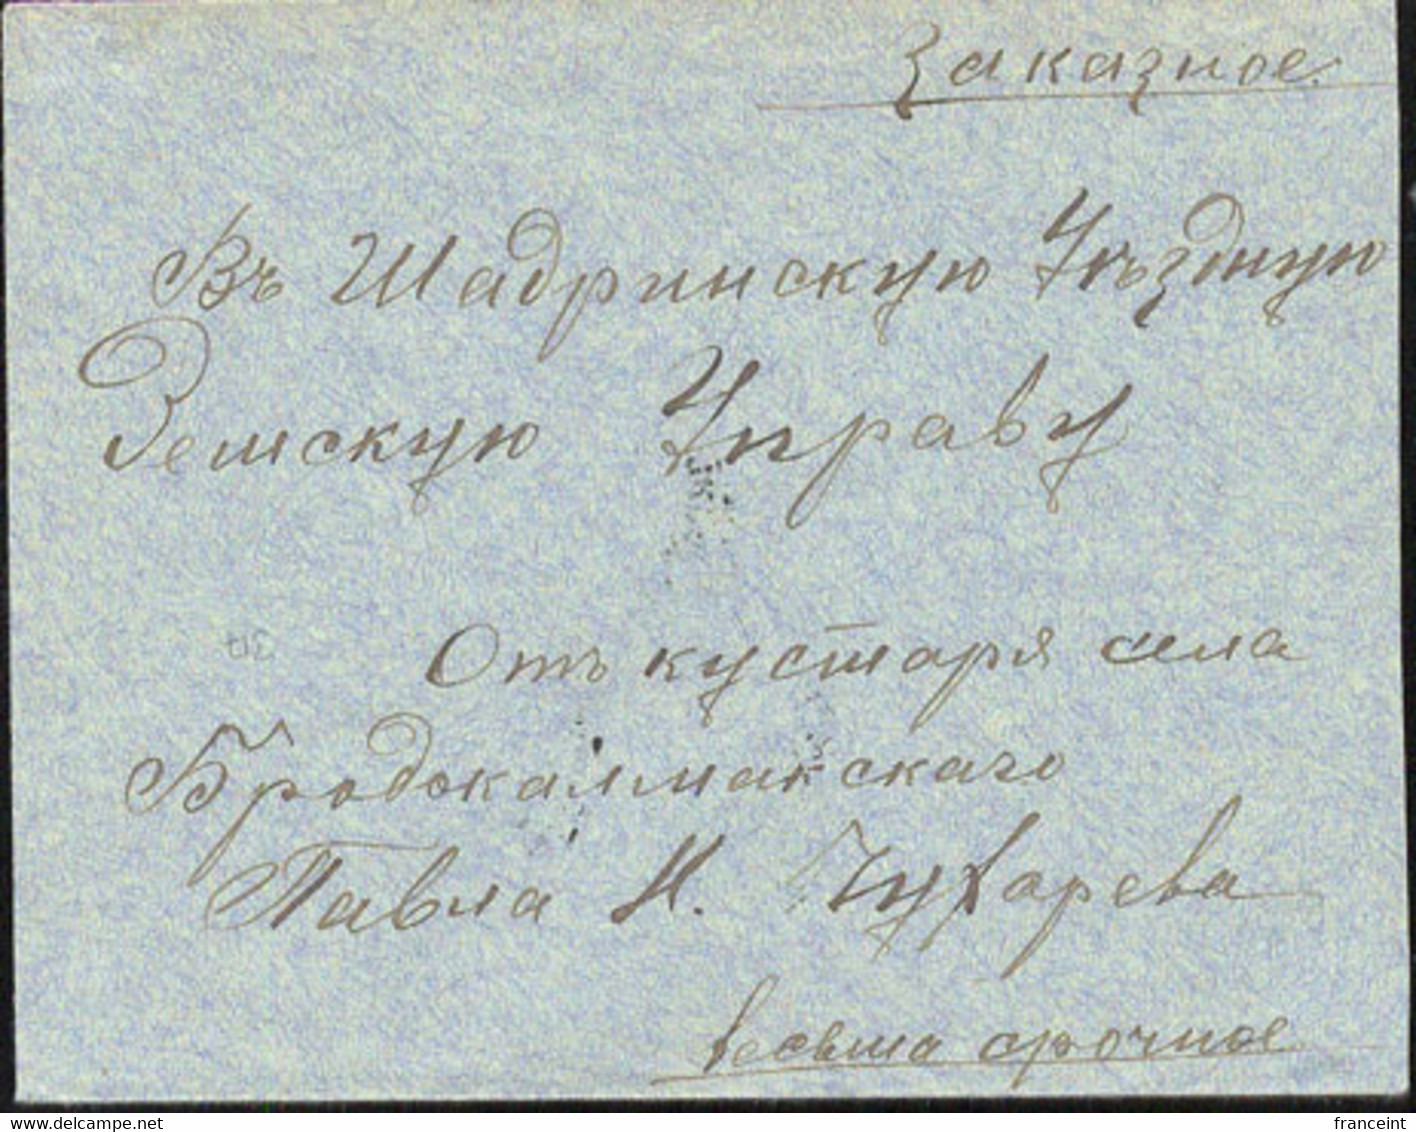 Заказное.
Въ Шадринскую Уѣздную
Земскую Управу
Отъ кустаря села
Бродокалмакскаго
Павла И. Чухарева
весьма срочное
www.delcampe.net
franceint